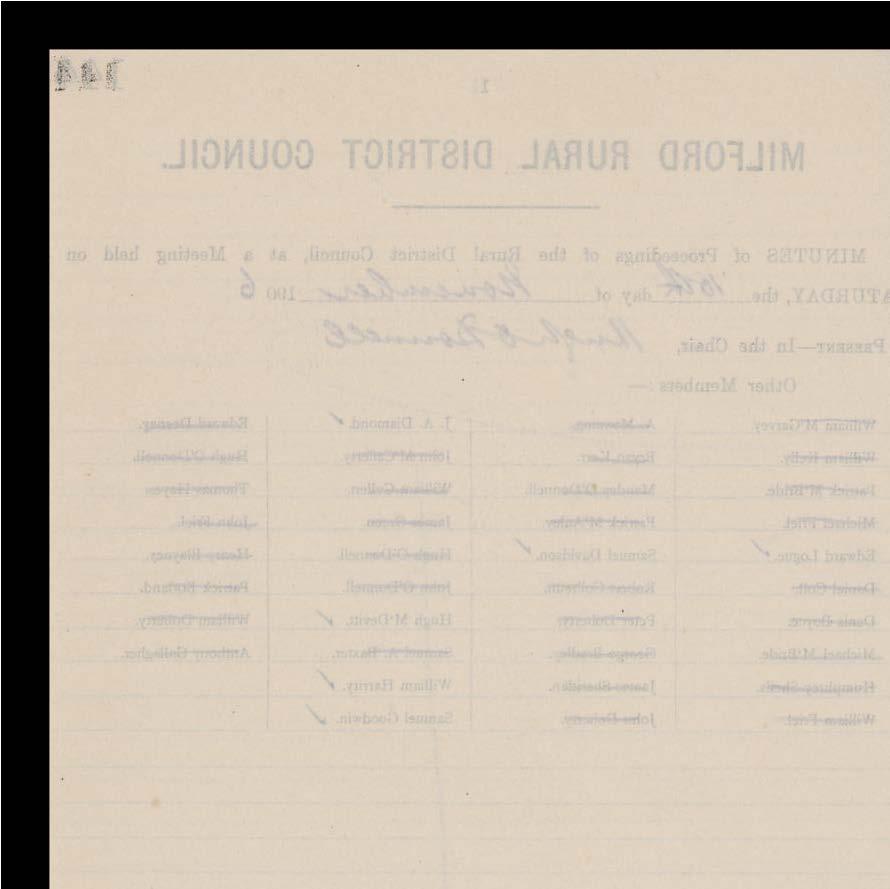 144
1
MILFORD RURAL DISTRICT COUNCIL.
MINUTES of Proceedings of the Rural District Council, at a Meeting held on
SATURDAY, the 10th day of November 1906
PRESENT—In the Chair, Hugh O'Donnell
Other Members:—
William McGarvey. A. Manning. J. A. Diamond. ✓ Edward Deeney.
William Kelly. Rogan Kerr. John McCafferty. Hugh O'Donnell.
Patrick McBride. Mandes O'Donnell. William Cullen. Thomas Hayes
Michael Friel. Patrick McAuley. James John Friel.
Edward Logue. ✓ Samuel Davidson. ✓ Hugh O'Donnell. Henry Blayney.
Daniel Coll. Robert John O'Donnell. Patrick
Denis Boyce. Peter Doherty. Hugh McDevitt. ✓ William Doherty.
Michael McBride. George Bradley. Samuel A. Baxter. Anthony Gallagher.
Humphrey Sheils. James Sheridan. William Harrity. ✓
William Friel. John Doherty. Samuel Goodwin. ✓